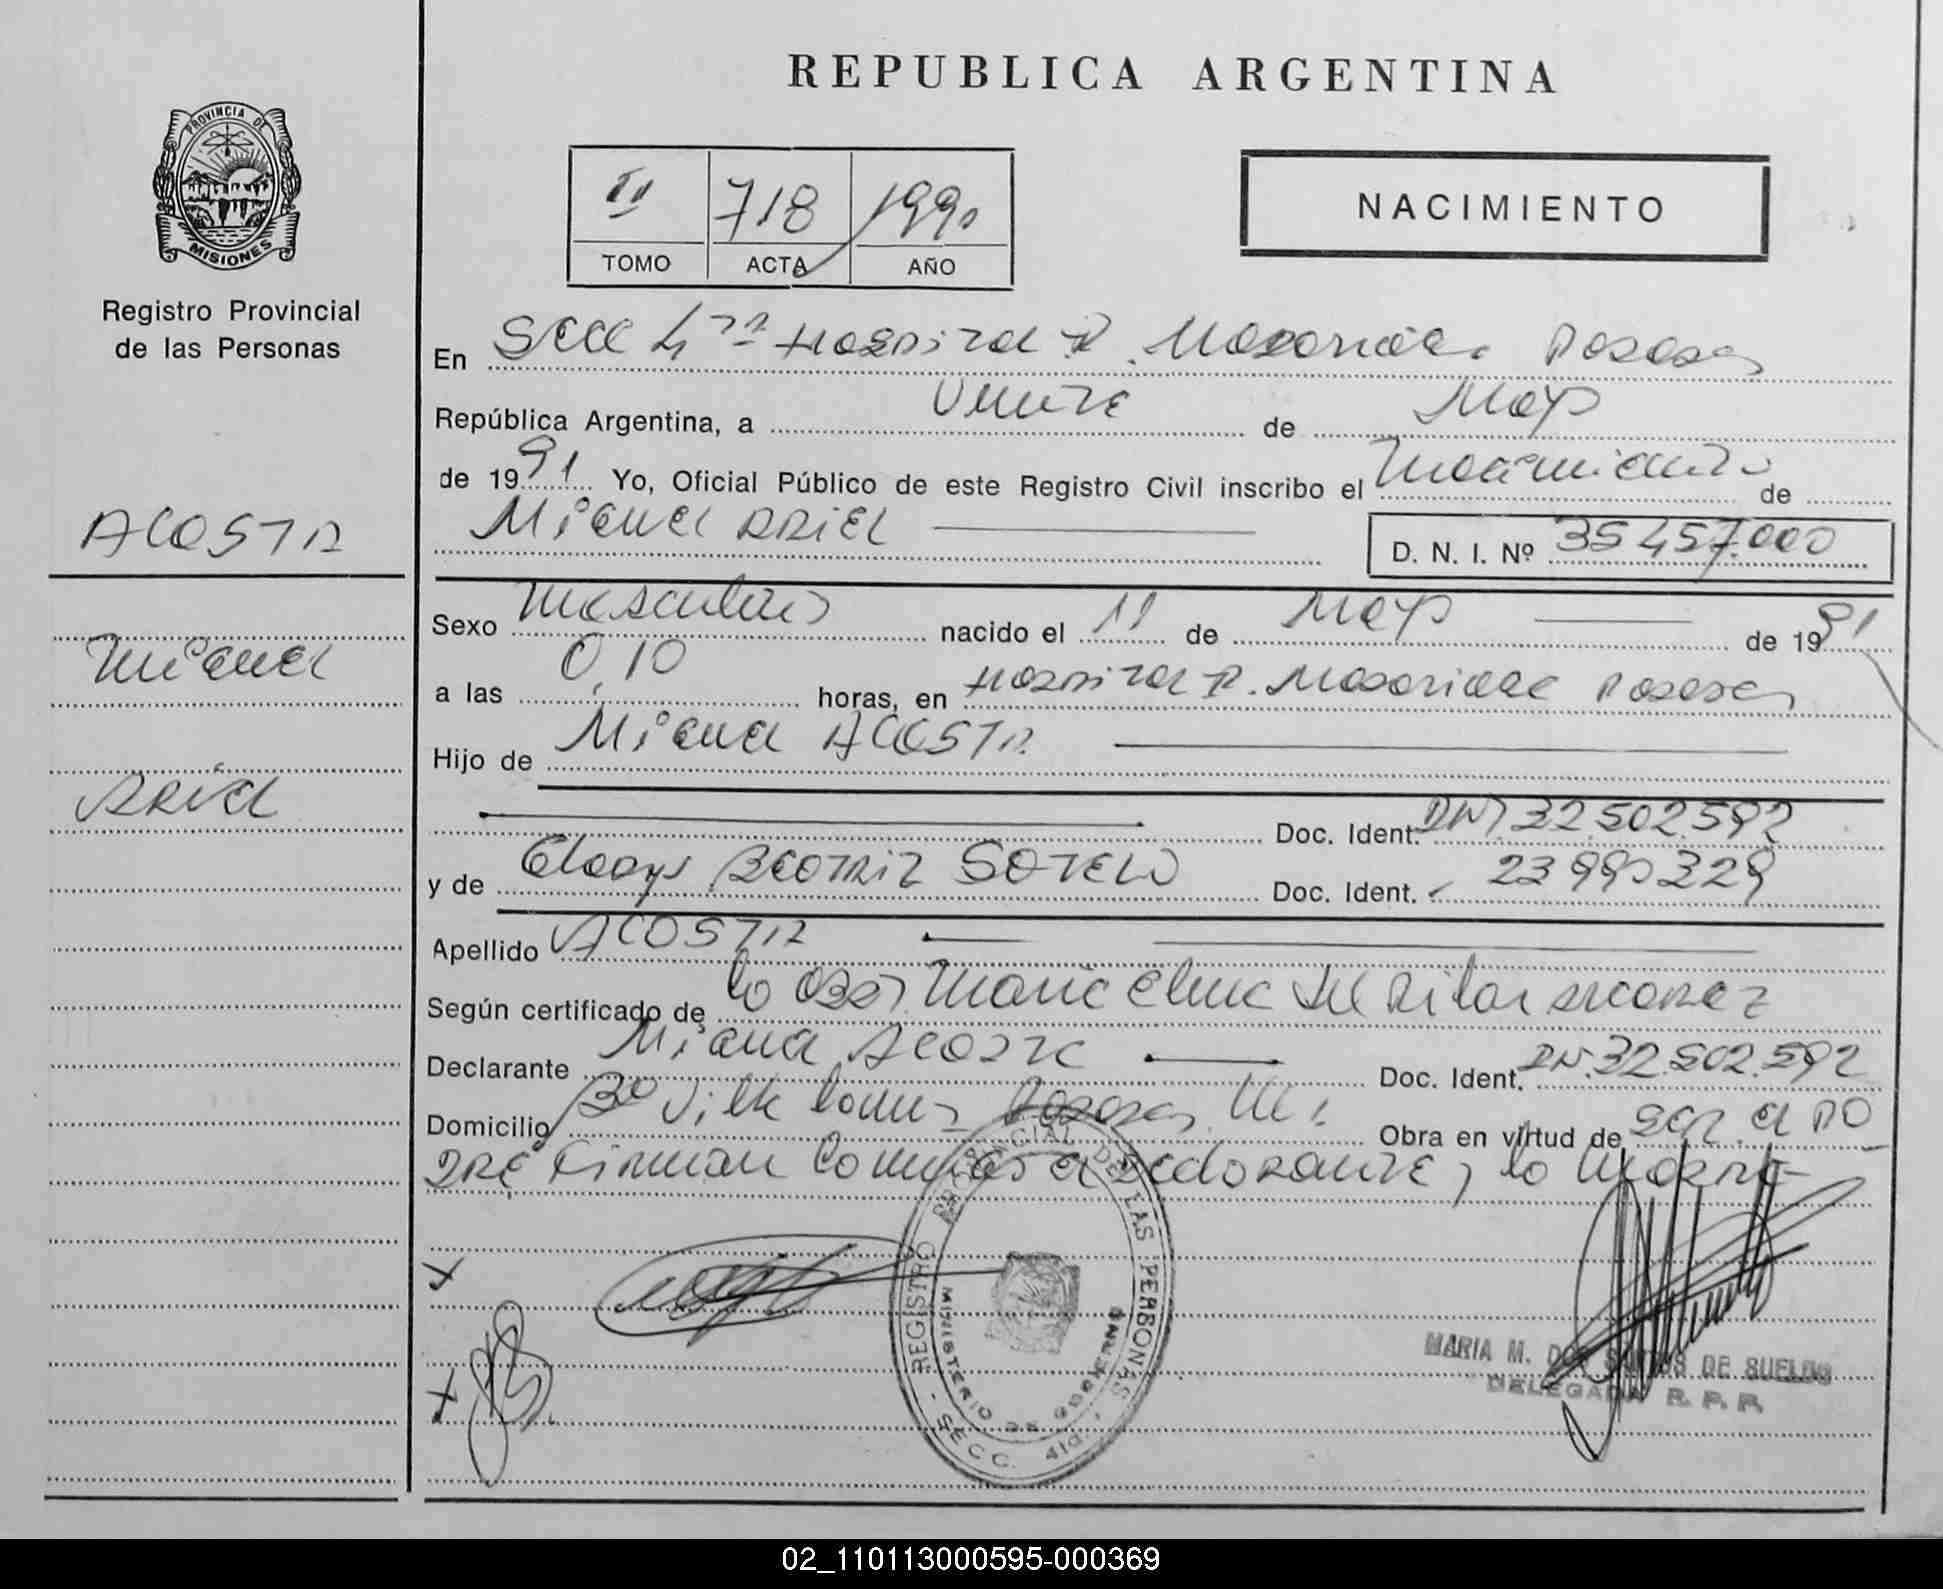 REPUBLICA ARGENTINA
PROVINCIA DE
MISIONES
Registro Provincial
de las Personas
II 718 1991
TOMO ACTA AÑO
NACIMIENTO
En Secc 4ta Hospital R. Madariaga Posadas
República Argentina, a Veinte de Mayo
de 1991 Yo, Oficial Público de este Registro Civil inscribo el Nacimiento de
Miguel ARIEL D. N. I. Nº 35457.000
ACOSTA
Miguel
Ariel
Sexo Masculino nacido el 11 de Mayo de 1991
a las 0,10 horas, en Hospital R. Madariaga Posadas
Hijo de Miguel ACOSTA
Doc. Ident. DNI 32.502.592
y de Gladys BEATRIZ SOTELO Doc. Ident. 23990329
Apellido ACOSTA
Según certificado de la Obst Maria Elena Del Pilar
Declarante Miguel Acosta Doc. Ident. DNI 32.502.592
Domicilio Bº Villa Posadas Obra en virtud de ser el Pa
dre Firman Conmigo el Declarante y la Madre
REGISTRO PROVINCIAL DE LAS PERSONAS
MINISTERIO DE GOBIERNO
SECC. 4ta.
MARIA M. DOS SANTOS DE SUELDO
DELEGADA R. P. P.
02_110113000595-000369